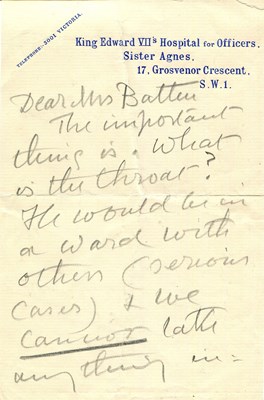 TELEPHONE: 2001 VICTORIA.
King Edward VII's Hospital for Officers.
Sister Agnes.
17, Grosvenor Crescent.
S.W.1.
Dear Mrs Batten
The important
thing is. What
is the throat?
He would be in
a ward with
others (serious
cases) & we
cannot
anything in=